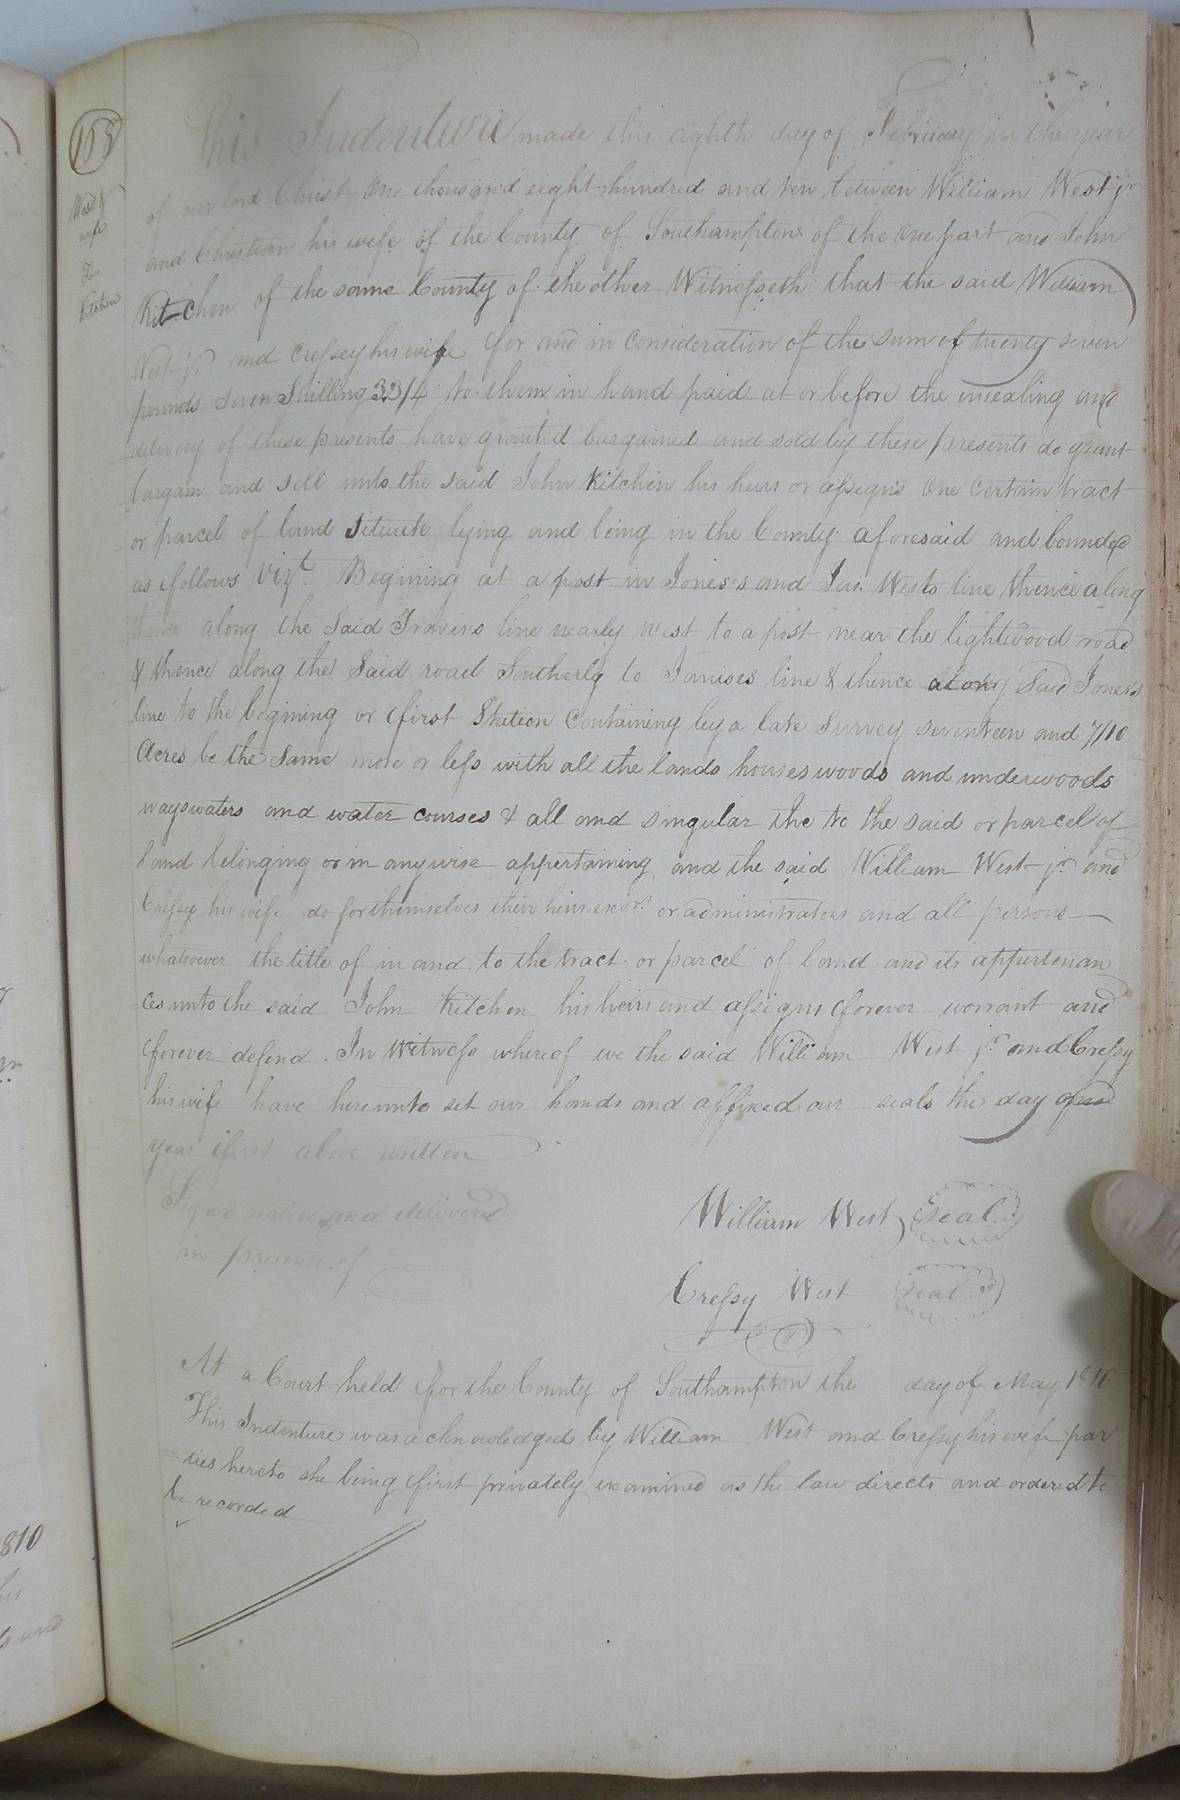 108
West &
wife
To
Kitchen
This Indenture made this eighth day of February in the year
of our lord Christ One thousand eight hundred and ten between William West jr
and Christian his wife of the County of Southampton of the One part and John
Kitchen of the same County of the other Witnesseth that the said William
West jr and Cressey his wife for and in consideration of the sum of twenty seven
pounds seven Shilling 3 3/4 to them in hand paid at or before the ensealing and
delivery of these presents have granted bargained and sold by these presents do grant
bargain and sell unto the said John Kitchen his heirs or assigns One certain tract
or parcel of land situate lying and being in the County aforesaid and bounded
as follows Vizt. Begining at a post in Jones's and Jas. Wests line thence along
thence along the Said line nearly west to a post near the lightwood road
& thence along the Said road Southerly to line & thence along Said Jones's
line to the begining or first Station Containing by a late Survey seventeen and 7/10
Acres be the Same more or less with all the lands houses woods and underwoods
ways waters and water courses & all and singular the to the said or parcel of
land belonging or in any wise appertaining and the said William West jr and
Cressy his wife do for themselves their heirs exors. or administrators and all persons
whatsoever the title of in and to the tract or parcel of land and its appurtenan
=ces unto the said John Kitchen his heirs and assigns forever warrant and
forever defend. In Witness whereof we the said William West jr and Cressy
his wife have hereunto set our hands and affixed our seals the day and
year first above written
Signed sealed and delivered
in presence of
William West Seal
Cressy West Seal
At a Court held for the County of Southampton the day of May 1810
This Indenture was acknowledged by William West and Cressy his wife par
=ties hereto she being first privately examined as the law directs and ordered to
be recorded
1810